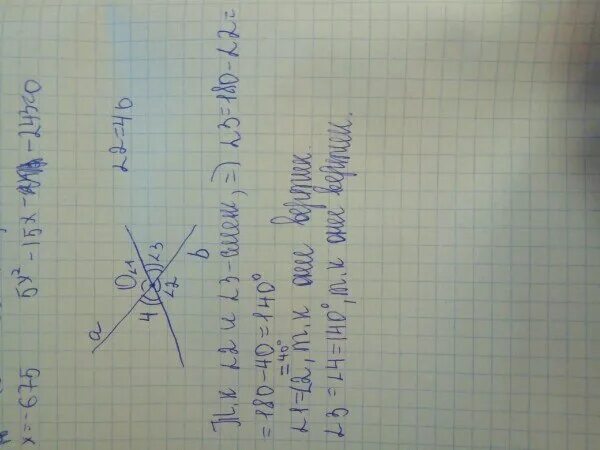 x=-675 5x²-15x-243=0
∠2=40
a
∠1
4 ∠3
∠2
b
Т.к ∠2 и ∠3-смеж, =) ∠3=180-∠2=
=180-40=140°
∠1=∠2, т.к они вертик.
=40°
∠3=∠4=140°, т.к они вертик.